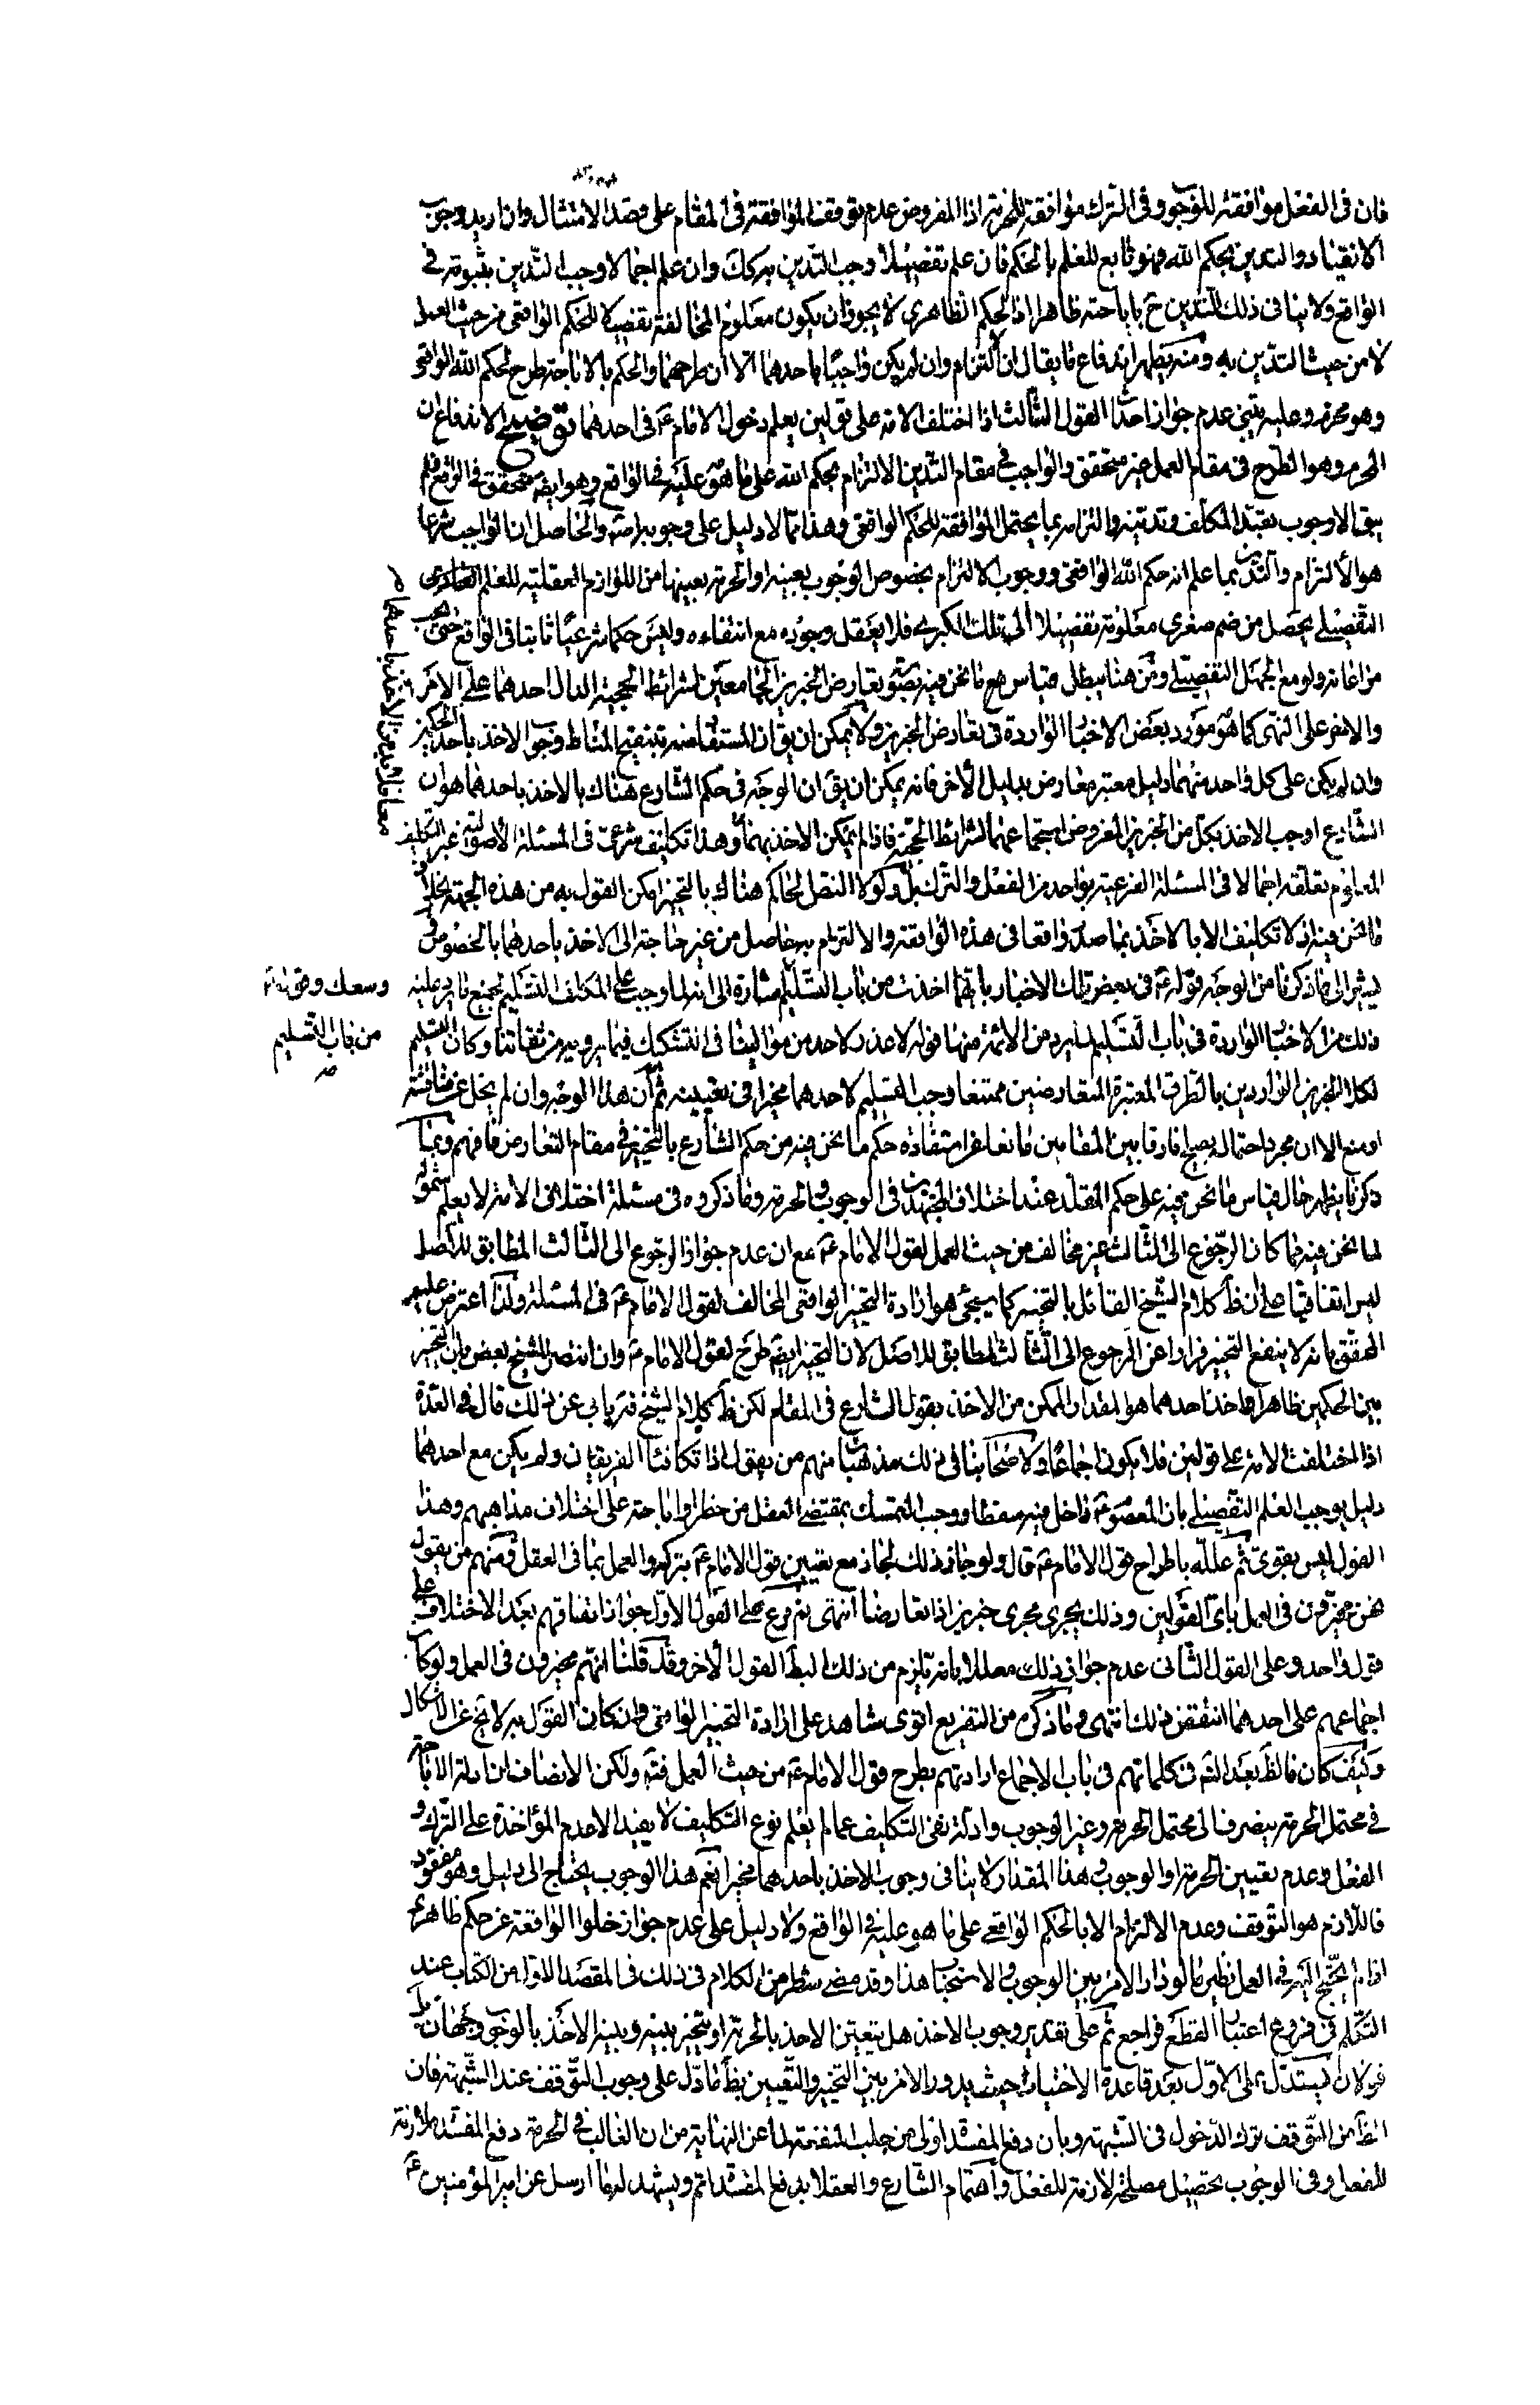 فان فى الفعل موافقة للوجوب وفى الترك موافقة للحرمة اذا المفروض عدم توقف الموافقة فى المقام على قصد الامتثال وان اريد وجوب
الانقياد والتدين بحكم الله فهو تابع للعلم بالحكم فان علم تفصيلا وجب التدين به كك وان علم اجمالا وجب التدين بثبوته فى
الواقع ولا ينافى ذلك التدين ح باباحته ظاهرا اذ الحكم الظاهرى لا يجوز ان يكون معلوم المخالفة تفصيلا للحكم الواقعى من حيث العمل
لا من حيث التدين به ومنه يظهر اندفاع ما يقال ان الالتزام وان لم يكن واجبا باحدهما الا ان طرحهما والحكم بالاباحة طرح لحكم الله الواقعى
وهو محرم وعليه يبنى عدم جواز احداث القول الثالث اذا اختلف الامة على قولين يعلم دخول الامام ع فى احدهما توضيح الاندفاع ان
المحرم وهو الطرح فى مقام العمل غير متحقق والواجب فى مقام التدين الالتزام بحكم الله على ما هو عليه فى الواقع وهو ايضا متحقق فى الواقع فلم
يبق الا وجوب تعبد المكلف وتدينه والتزامه بما يحتمل الموافقة للحكم الواقعى وهذا مما لا دليل على وجوبه اصلا والحاصل ان الواجب شرعا
هو الالتزام والتدين بما علم انه حكم الله الواقعى ووجوب الالتزام بخصوص الوجوب بعينه او الحرمة بعينها من اللوازم العقلية للعلم العادى
التفصيلى يحصل من ضم صغرى معلومة تفصيلا الى تلك الكبرى فلا يعقل وجوده مع انتفاءه وليس حكما شرعيا ثابتا فى الواقع حتى يجب
مراعاته ولو مع الجهل التفصيلى ومن هنا يبطل قياس ما نحن فيه بصورة تعارض الخبرين الجامعين لشرائط الحجية الدال احدهما على الامر
والاخر على النهى كما هو مورد بعض الاخبار الواردة فى تعارض الخبرين ولا يمكن ان يق ان المستفاد منه بتنقيح المناط وجوب الاخذ باحد الحكمين
وان لم يكن على كل واحد منهما دليل معتبر معارض بدليل الاخر فانه يمكن ان يق ان الوجه فى حكم الشارع هناك بالاخذ باحدهما هو ان
الشارع اوجب الاخذ بكل من الخبرين المفروض استجماعهما لشرائط الحجية فاذا لم يمكن الاخذ بهما معا فلا بد من الاخذ باحدهما وهذا تكليف شرعى فى المسئلة الاصولية غير التكليف
المعلوم تعلقه اجمالا فى المسئلة الفرعية بواحد من الفعل والترك بل ولولا النص الحاكم هناك بالتخيير امكن القول به من هذه الجهة بخلاف
ما نحن فيه اذ لا تكليف الا بالاخذ بما صدر واقعا فى هذه الواقعة والالتزام به حاصل من غير حاجة الى الاخذ باحدهما بالخصوص و
يشير الى ما ذكرنا من الوجه قوله ع فى بعض تلك الاخبار بايهما اخذت من باب التسليم وسعك وقوله ع من باب التسليم اشارة الى انه لما وجب على المكلف التسليم لجميع ما يرد عليه
ذلك من الاخبار الواردة فى باب التسليم لما يرد من الائمة منها قوله لا عذر لاحد من موالينا فى التشكيك فيما يرويه عنا ثقاتنا وكان التسليم
لكلا الخبرين الواردين بالطرق المعتبرة المتعارضين ممتنعا وجب التسليم لاحدهما مخيرا فى تعيينه ثم ان هذا الوجه وان لم يخل عن مناقشة
او منع الا ان مجرد احتماله يصلح فارقا بين المقامين مانعا عن استفادة حكم ما نحن فيه من حكم الشارع بالتخيير فى مقام التعارض فافهم وبما
ذكرنا يظهر حال قياس ما نحن فيه على حكم المقلد عند اختلاف المجتهدين فى الوجوب والحرمة وما ذكروه فى مسئلة اختلاف الامة لا يعلم شموله
لما نحن فيه مما كان الرجوع الى الثالث غير مخالف من حيث العمل لقول الامام ع مع ان عدم جواز الرجوع الى الثالث المطابق للاصل
ليس اتفاقيا على ان ظ كلام الشيخ القائل بالتخيير كما سيجئ هو ارادة التخيير الواقعى المخالف لقول الامام ع فى المسئلة ولذا اعترض عليه
المحقق بانه لا ينفع التخيير فرارا عن الرجوع الى الثالث المطابق للاصل لان التخيير ايضا طرح لقول الامام ع وان انتصر للشيخ بعض بان التخيير
بين الحكمين ظاهرا واخذ احدهما هو المقدار الممكن من الاخذ بقول الشارع فى المقام لكن ظ كلام الشيخ قده يابى عن ذلك قال فى العدة
اذا اختلفت الامة على قولين فلا يكون اجماعا ولاصحابنا فى ذلك مذهبان منهم من يقول اذا تكافئا الفريقان ولم يكن مع احدهما
دليل يوجب العلم التفصيلى بان المعصوم ع داخل فيه سقطا ووجب التمسك بمقتضى العقل من حظر او اباحة على اختلاف مذاهبهم وهذا
القول ليس بقوى ثم علله باطراح قول الامام ع قال ولو جاز ذلك لجاز مع تعيين قول الامام ع تركه والعمل بما فى العقل ومنهم من يقول
نحن مخيرون فى العمل باى القولين وذلك يجرى مجرى خبرين اذا تعارضا انتهى ثم فرع على القول الاول جواز اتفاقهم بعد الاختلاف على
قول واحد وعلى القول الثانى عدم جواز ذلك معللا بانه يلزم من ذلك بطلان القول الاخر وقد قلنا انهم مخيرون فى العمل ولو كان
اجماعهم على احدهما انتقض ذلك انتهى وما ذكره من التفريع اقوى شاهد على ارادة التخيير الواقعى وان كان القول به لا يخ عن الاشكال
وكيف كان فالظ بعد التامل فى كلماتهم فى باب الاجماع ارادتهم بطرح قول الامام ع من حيث العمل فتامل ولكن الانصاف ان ادلة الاباحة
فى محتمل الحرمة ينصرف الى محتمل الحرمة وغير الوجوب وادلة نفى التكليف عما لم يعلم نوع التكليف لا يفيد الا عدم المؤاخذة على الترك و
الفعل وعدم تعيين الحرمة او الوجوب وهذا المقدار لا ينافى وجوب الاخذ باحدهما مخيرا نعم هذا الوجوب يحتاج الى دليل وهو مفقود
فاللازم هو التوقف وعدم الالتزام الا بالحكم الواقعى على ما هو عليه فى الواقع ولا دليل على عدم جواز خلوا الواقعة عن حكم ظاهرى
اذا لم يحتج اليه فى العمل نظير ما لو دار الامر بين الوجوب والاستحباب هذا وقد مضى شطر من الكلام فى ذلك فى المقصد الاول من الكتاب عند
التكلم فى فروع اعتبار القطع فراجع ثم على تقدير وجوب الاخذ هل يتعين الاخذ بالحرمة او يتخير بينه وبين الاخذ بالوجوب وجهان بل
قولان يستدل على الاول بعد قاعدة الاحتياط حيث يدور الامر بين التخيير والتعيين بظ ما دل على وجوب التوقف عند الشبهة فان
الظ من التوقف ترك الدخول فى الشبهة وبان دفع المفسدة اولى من جلب المنفعة لما عن النهاية من ان الغالب فى الحرمة دفع المفسدة الملازمة
للفعل وفى الوجوب تحصيل مصلحة لازمة للفعل واهتمام الشارع والعقلاء بدفع المفسدة اتم ويشهد له ما ارسل عن امير المؤمنين ع